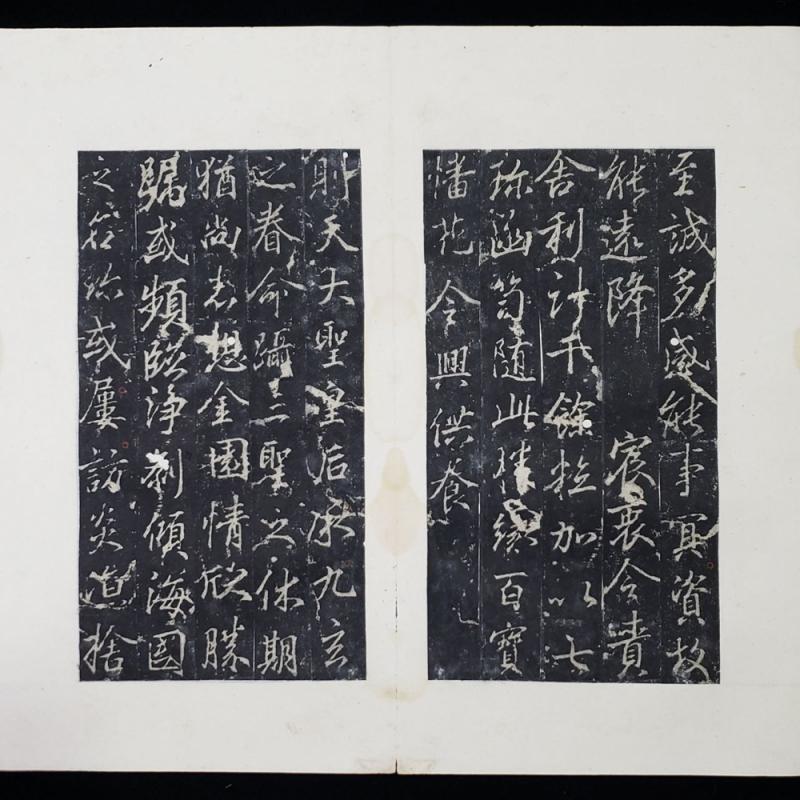 至誠多感能事冥資故
能遠降 宸衷令賚
舍利計千餘粒加以七
珍函笥隨此勝緣百寶
幡花令興供養
則天大聖皇后承九玄
之眷命躡三聖之休期
猶尚志想金園情欣勝
躅或頻臨淨剎傾海國
之名珍或屢訪造捨